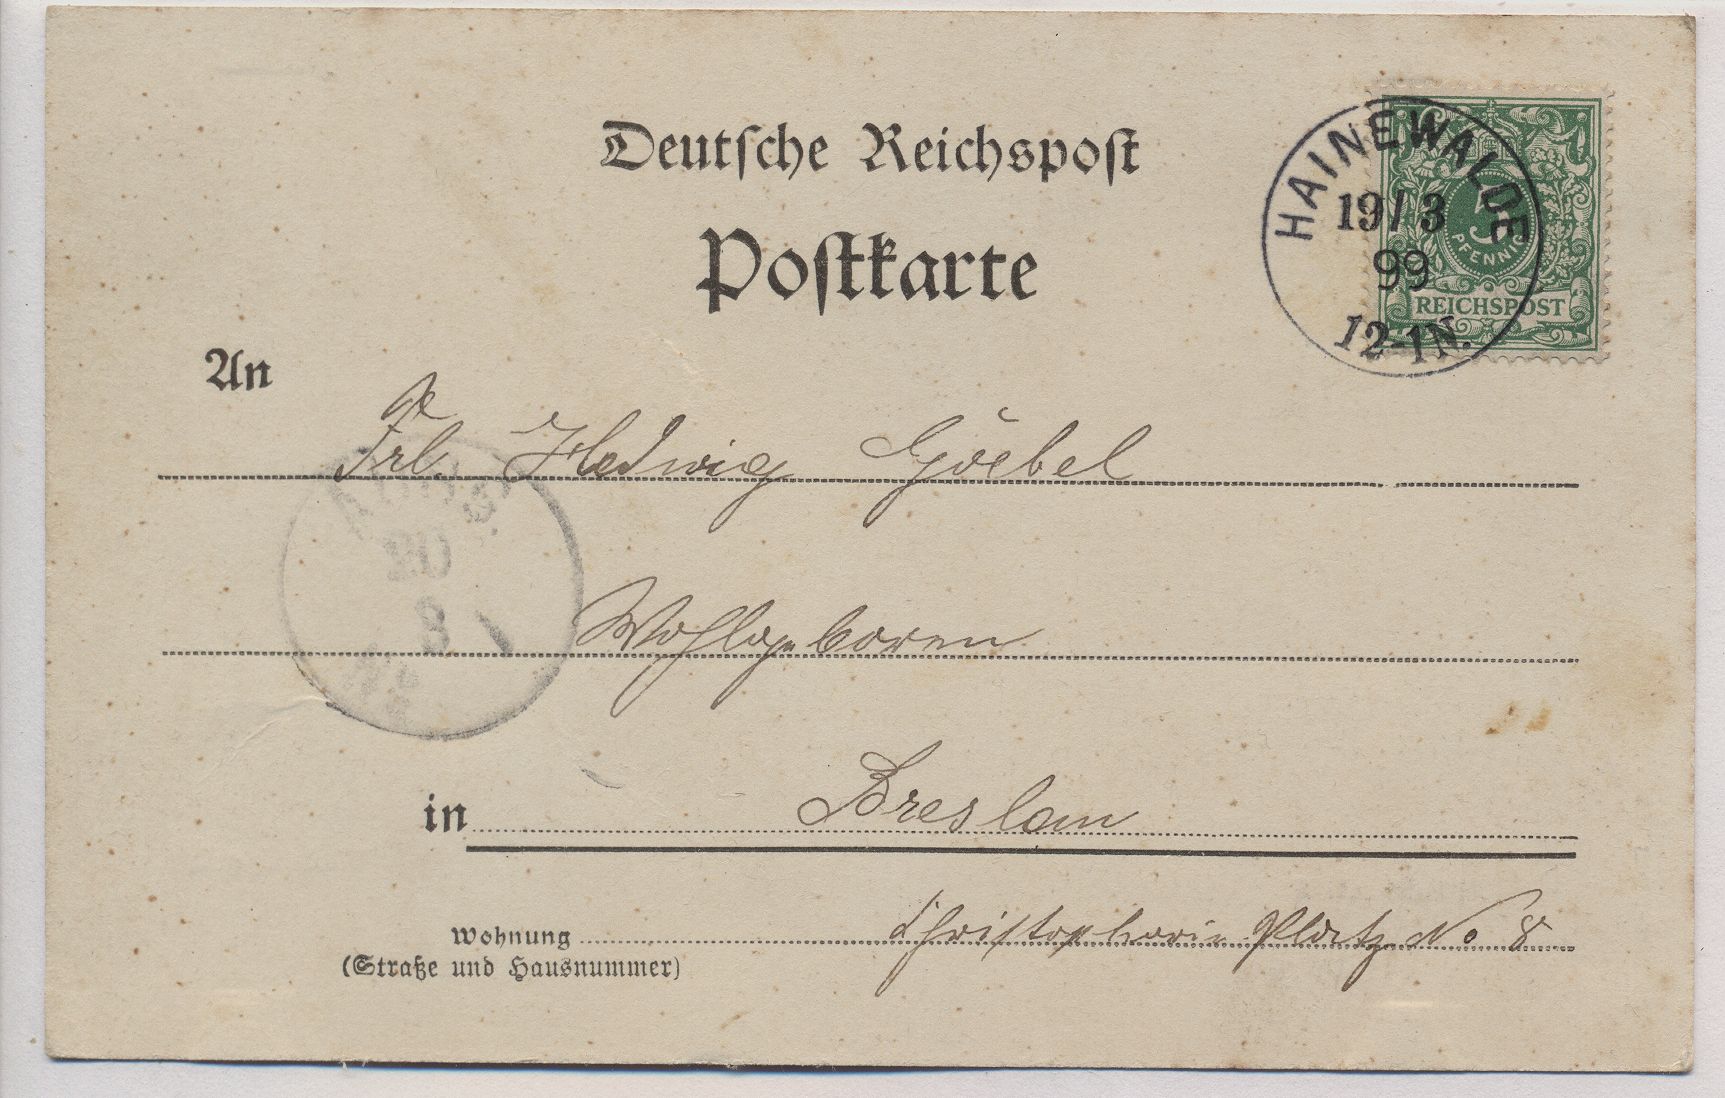 Deutsche Reichspost
Postkarte
HAINEWALDE
19/3
99
12-1N.
5
PFENNIG
REICHSPOST
An
Frl. Hedwig Goebel
20
3
Wohlgeboren
in Breslau
Wohnung Christophori Platz No 8
(Straße und Hausnummer)